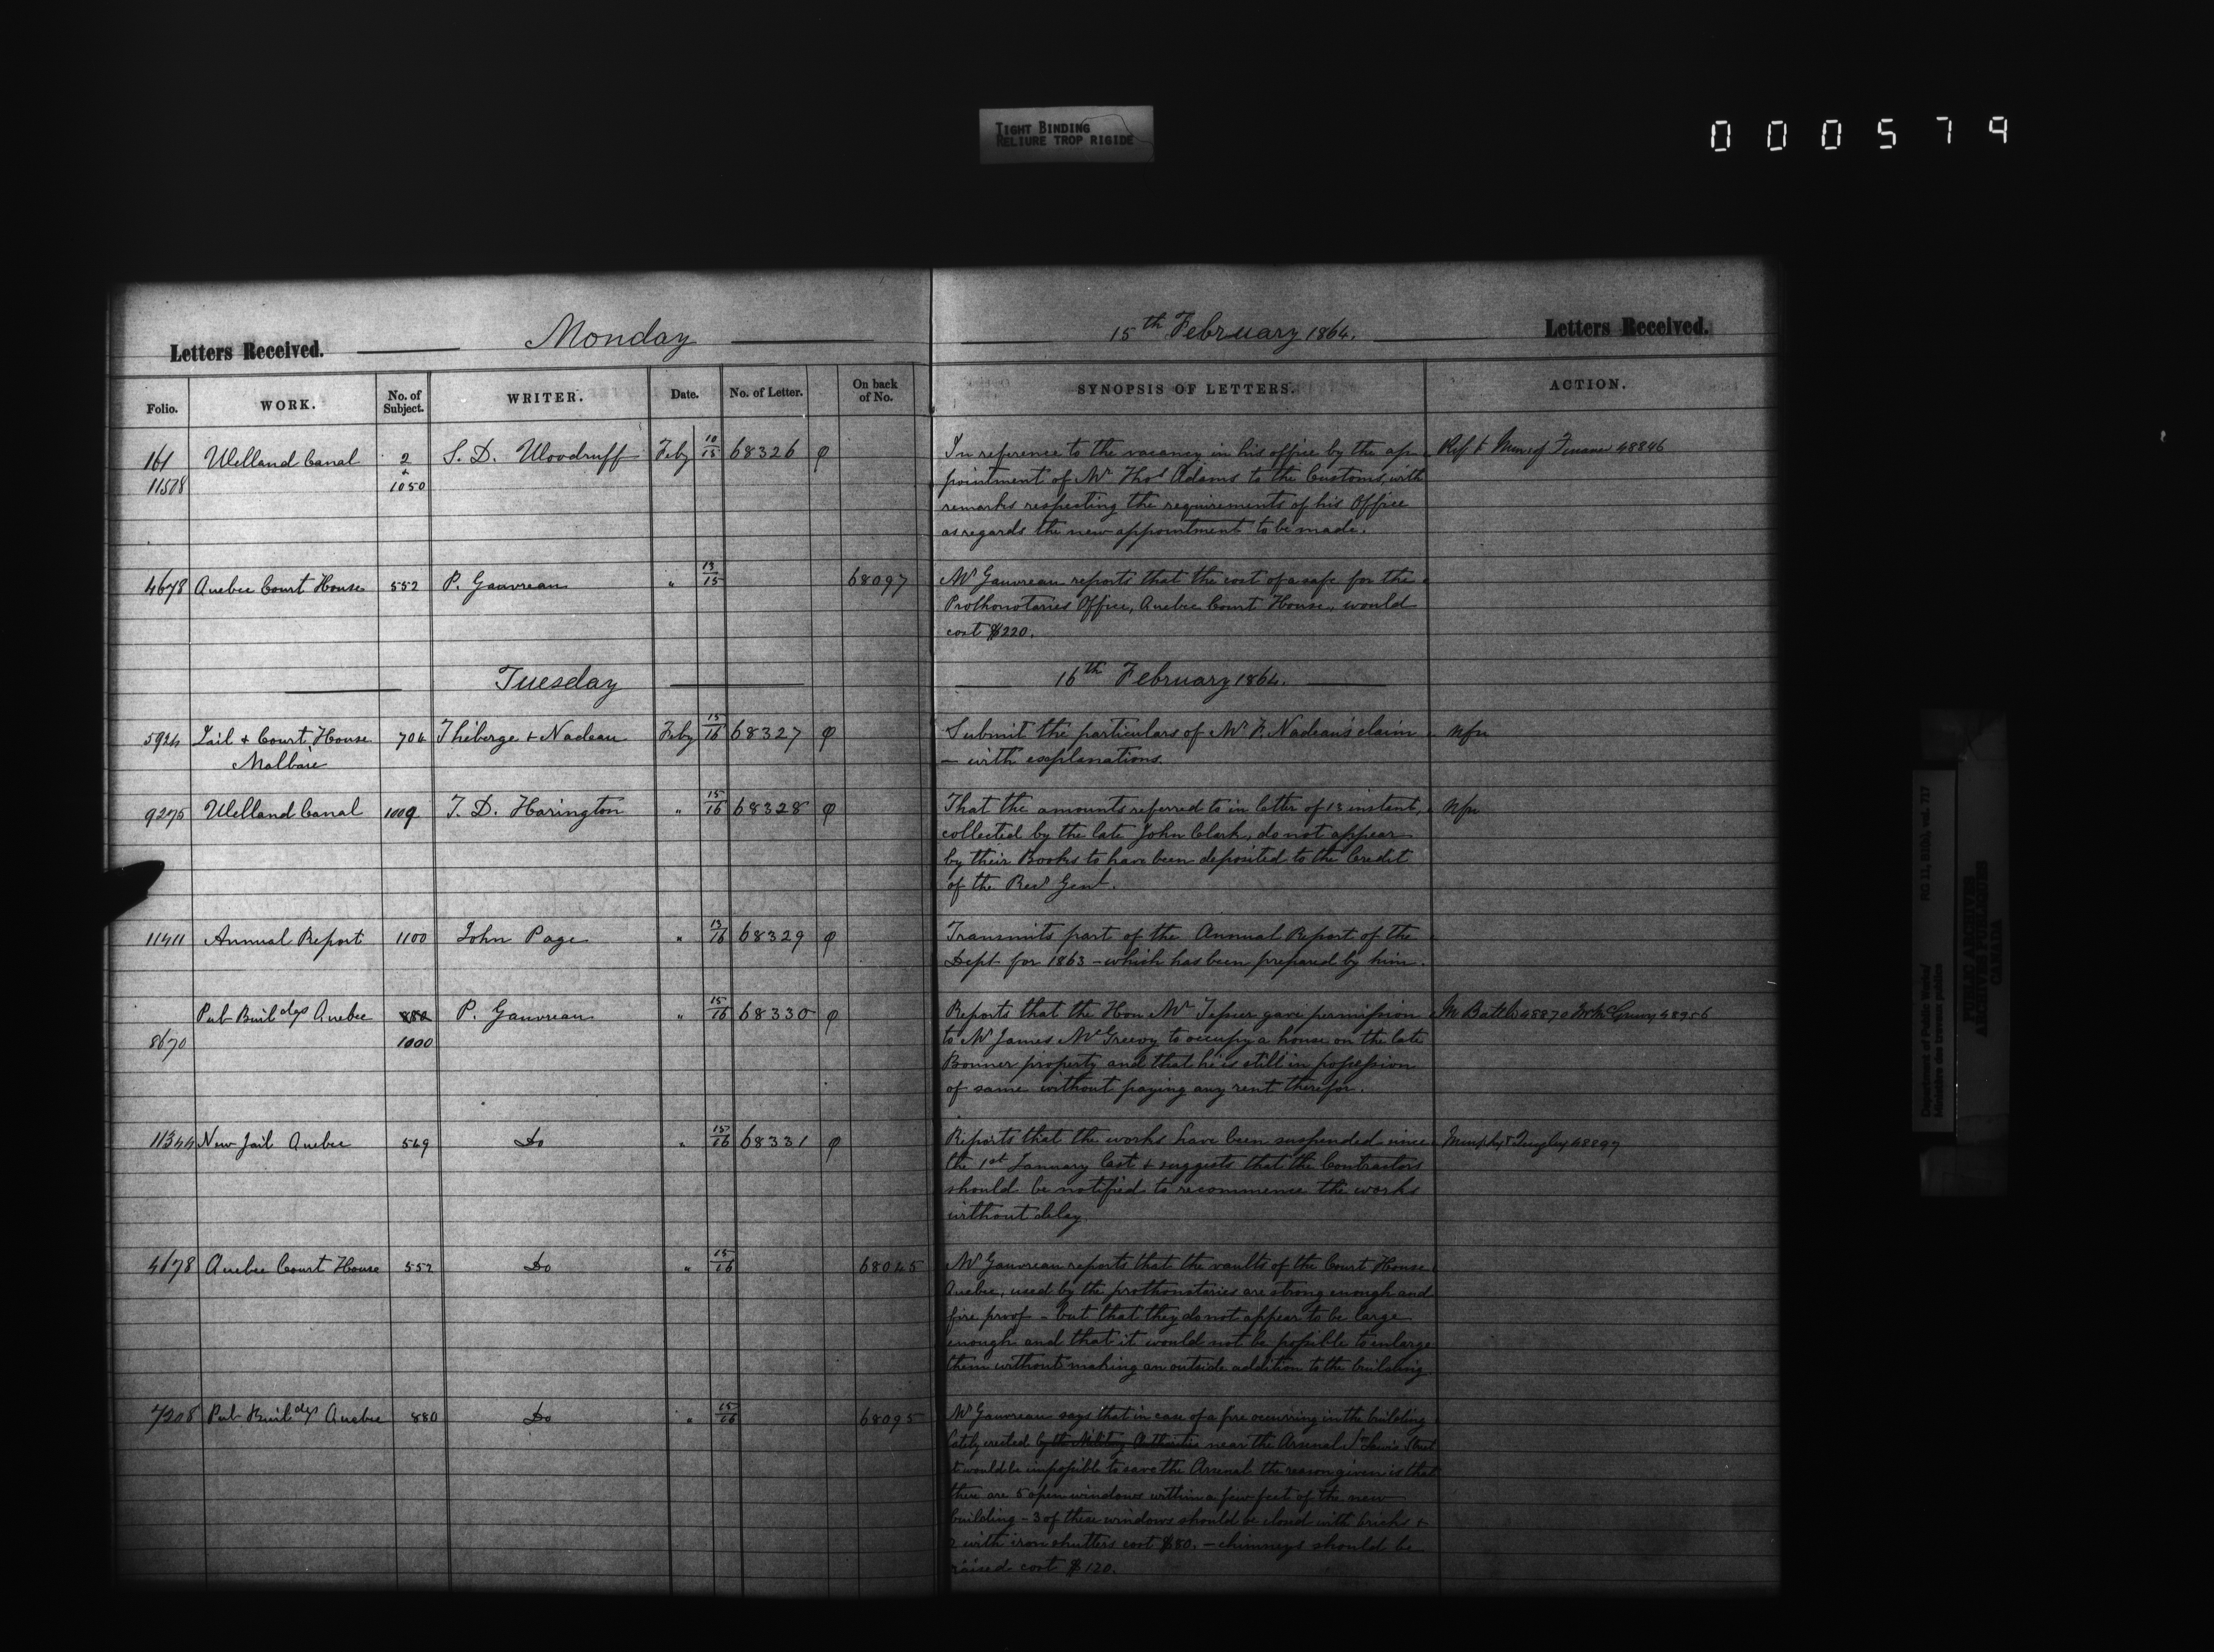 TIGHT BINDING
RELIURE TROP RIGIDE
000579
Letters Received. Monday 15th February 1864. Letters Received.
Folio. WORK. No. of Subject. WRITER. Date. No. of Letter. On back of No. SYNOPSIS OF LETTERS. ACTION.
161 Welland Canal 2 S. D. Woodruff Feby 10/15 68326 φ In reference to the vacancy in his office by the ap- Ref to Min of Finance 48846
11578 + 1050 pointment of Mr Thos Adams to the Customs, with
remarks respecting the requirements of his Office
as regards the new appointment to be made.
4678 Quebec Court House 552 P. Gauvreau " 13/15 68097 Mr Gauvreau reports that the cost of a safe for the
Prothonotaries Office, Quebec Court House, would
cost $220.
Tuesday 16th February 1864.
5924 Jail & Court House 704 Théberge & Nadeau Feby 15/16 68327 φ Submit the particulars of Mr P. Nadeau's claim nfn
Malbaie — with explanations.
9275 Welland Canal 1009 T. D. Harington " 15/16 68328 φ That the amounts referred to in letter of 13 instant, nfn
collected by the late John Clark, do not appear
by their Books to have been deposited to the Credit
of the Recr Genl.
11411 Annual Report 1100 John Page " 13/16 68329 φ Transmits part of the Annual Report of the
Dept for 1863 - which has been prepared by him.
Pub Buildgs Quebec 880 P. Gauvreau " 15/16 68330 φ Reports that the Hon Mr Tessier gave permission 48870 48956
8670 1000 to Mr James McGreevy to occupy a house on the late
Bonner property and that he is still in possession
of same without paying any rent therefor.
11344 New Jail Quebec 569 Do " 15/16 68331 φ Reports that the works have been suspended since Murphy & Quigley 48897
the 1st January last & suggests that the Contractors
should be notified to recommence the works
without delay
4678 Quebec Court House 552 Do " 15/16 68045 Mr Gauvreau reports that the vaults of the Court House
Quebec, used by the prothonotaries are strong enough and
fire proof - but that they do not appear to be large
enough and that it would not be possible to enlarge
them without making an outside addition to the building.
7208 Pub Buildgs Quebec 880 Do " 15/16 68095 Mr Gauvreau says that in case of a fire occurring in the building
lately erected by the Military Authorities near the Arsenal St Lewis Street
it would be impossible to save the Arsenal the reason given is that
there are 5 open windows within a few feet of the new
building - 3 of these windows should be closed with bricks &
2 with iron shutters cost $80. - chimneys should be
raised cost $120.
Department of Public Works/ RG 11, B1(b), vol. 717
Ministère des travaux publics
PUBLIC ARCHIVES
ARCHIVES PUBLIQUES
CANADA